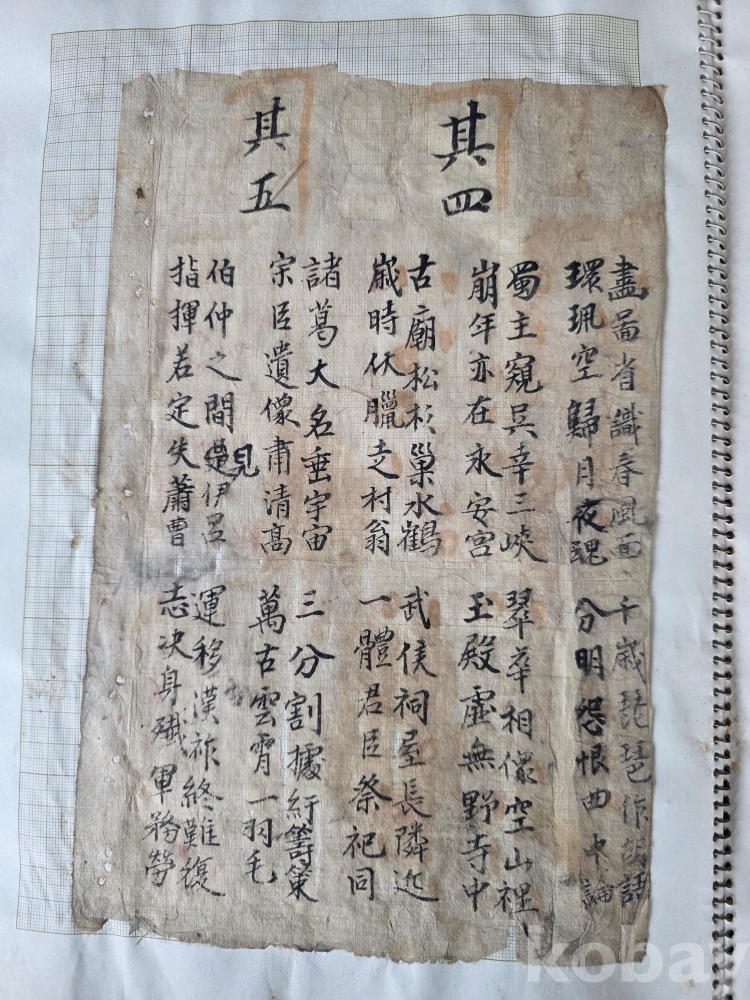 畵畐省識春風面
環珮空歸月夜魂
千歲琵琶作胡語
分明怨恨曲中論
其四
蜀主窺吳幸三峽
崩年亦在永安宮
翠華相像空山裡
玉殿虛無野寺中
古廟松杉巢水鶴
歲時伏臘走村翁
武侯祠屋長隣近
一體君臣祭祀同
其五
諸葛大名垂宇宙
宗臣遺像肅清高
三分割據紆籌策
萬古雲霄一羽毛
伯仲之間見伊呂
指揮若定失蕭曹
運移漢祚終難復
志決身殲軍務勞
kobay